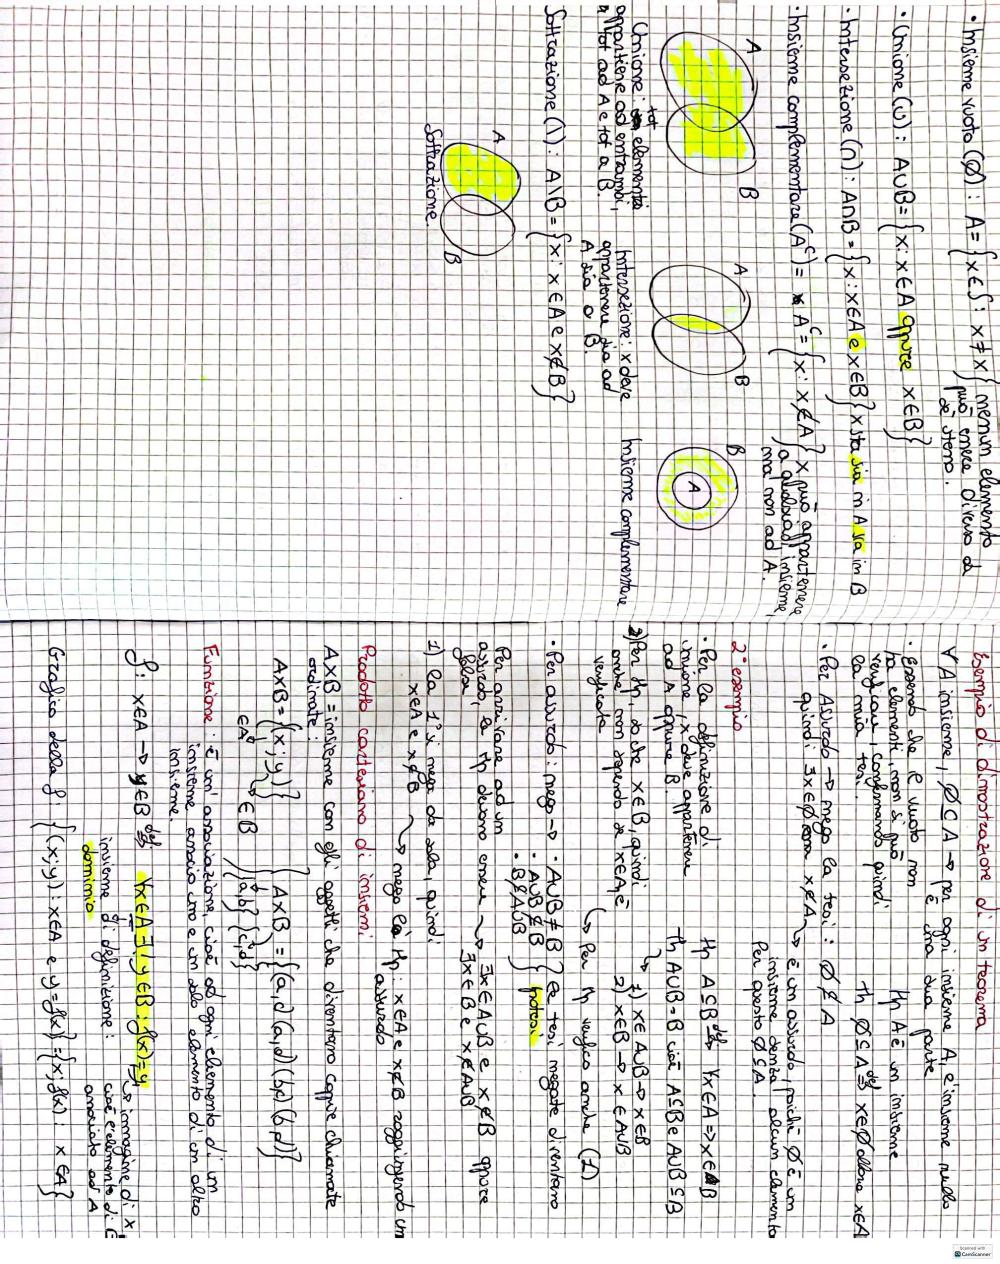 • Insieme vuoto (∅) : A = {x∈S : x≠x} nessun elemento
può essere diverso da
se stesso.
• Unione (∪) : A∪B = {x : x∈A oppure x∈B}
• Intersezione (∩) : A∩B = {x : x∈A e x∈B} x sta sia in A sia in B
• Insieme complementare (Aᶜ) = Aᶜ = {x : x∉A} x può appartenere
a qualsiasi insieme,
ma non ad A.
A B
A B
B A
Unione : tot elementi
appartiene ad entrambi,
tot ad A e tot a B.
Intersezione : x deve
appartenere sia ad
A sia a B.
Insieme complementare
Sottrazione (\) : A\B = {x : x∈A e x∉B}
A B
Sottrazione.
Esempio di dimostrazione di un teorema
∀A insieme, ∅⊆A → per ogni insieme A, l'insieme nullo
è una sua parte
• Essendo che è vuoto non
ha elementi, non si può
verificare, confermando quindi
la mia tesi.
Hp A è un insieme
Th ∅⊆A ⇔def x∈∅ allora x∈A
• Per Assurdo → nego la tesi : ∅⊈A
quindi ∃x∈∅ con x∉A → è un assurdo, poiché ∅ è un
insieme senza alcun elemento
Per questo ∅⊆A.
2° esempio
• Per la definizione di
unione, x deve appartenere
ad A oppure B.
Hp A⊆B ⇔def ∀x∈A ⇒ x∈B
Th A∪B=B cioè A⊆B e A∪B⊆B
1) x∈A∪B → x∈B
2) x∈B → x∈A∪B
2) Per Hp, so che x∈B, quindi
anche non sapendo se x∈A, è
verificata
→ Per Th verifico anche (1)
• Per assurdo : nego → • A∪B≠B
• A∪B⊈B
• B⊈A∪B
le tesi negate diventano
ipotesi
Per arrivare ad un
assurdo, le Th devono essere
false,
→ ∃x∈A∪B e x∉B oppure
∃x∈B e x∉A∪B
1) la 1° si nega da sola, quindi
x∈A e x∉B → nego la Hp : x∈A e x∉B raggiungendo un
assurdo
Prodotto cartesiano di insiemi
A×B = insieme con gli oggetti che diventano coppie chiamate
ordinate :
A×B = {(x ; y)}
∈A ∈B
{a,b} {c,d}
A×B = {(a,d)(a,d)(b,c)(b,d)}
Funzione : è un'associazione, cioè ad ogni elemento di un
insieme associo uno e un solo elemento di un altro
insieme.
f : x∈A → y∈B ⇔def ∀x∈A ∃! y∈B : f(x)=y → immagine di x
insieme di definizione :
dominio
cioè l'elemento di
associato ad A
Grafico della f {(x ; y) : x∈A e y=f(x)} = {x ; f(x) : x∈A}
Scanned with
CamScanner